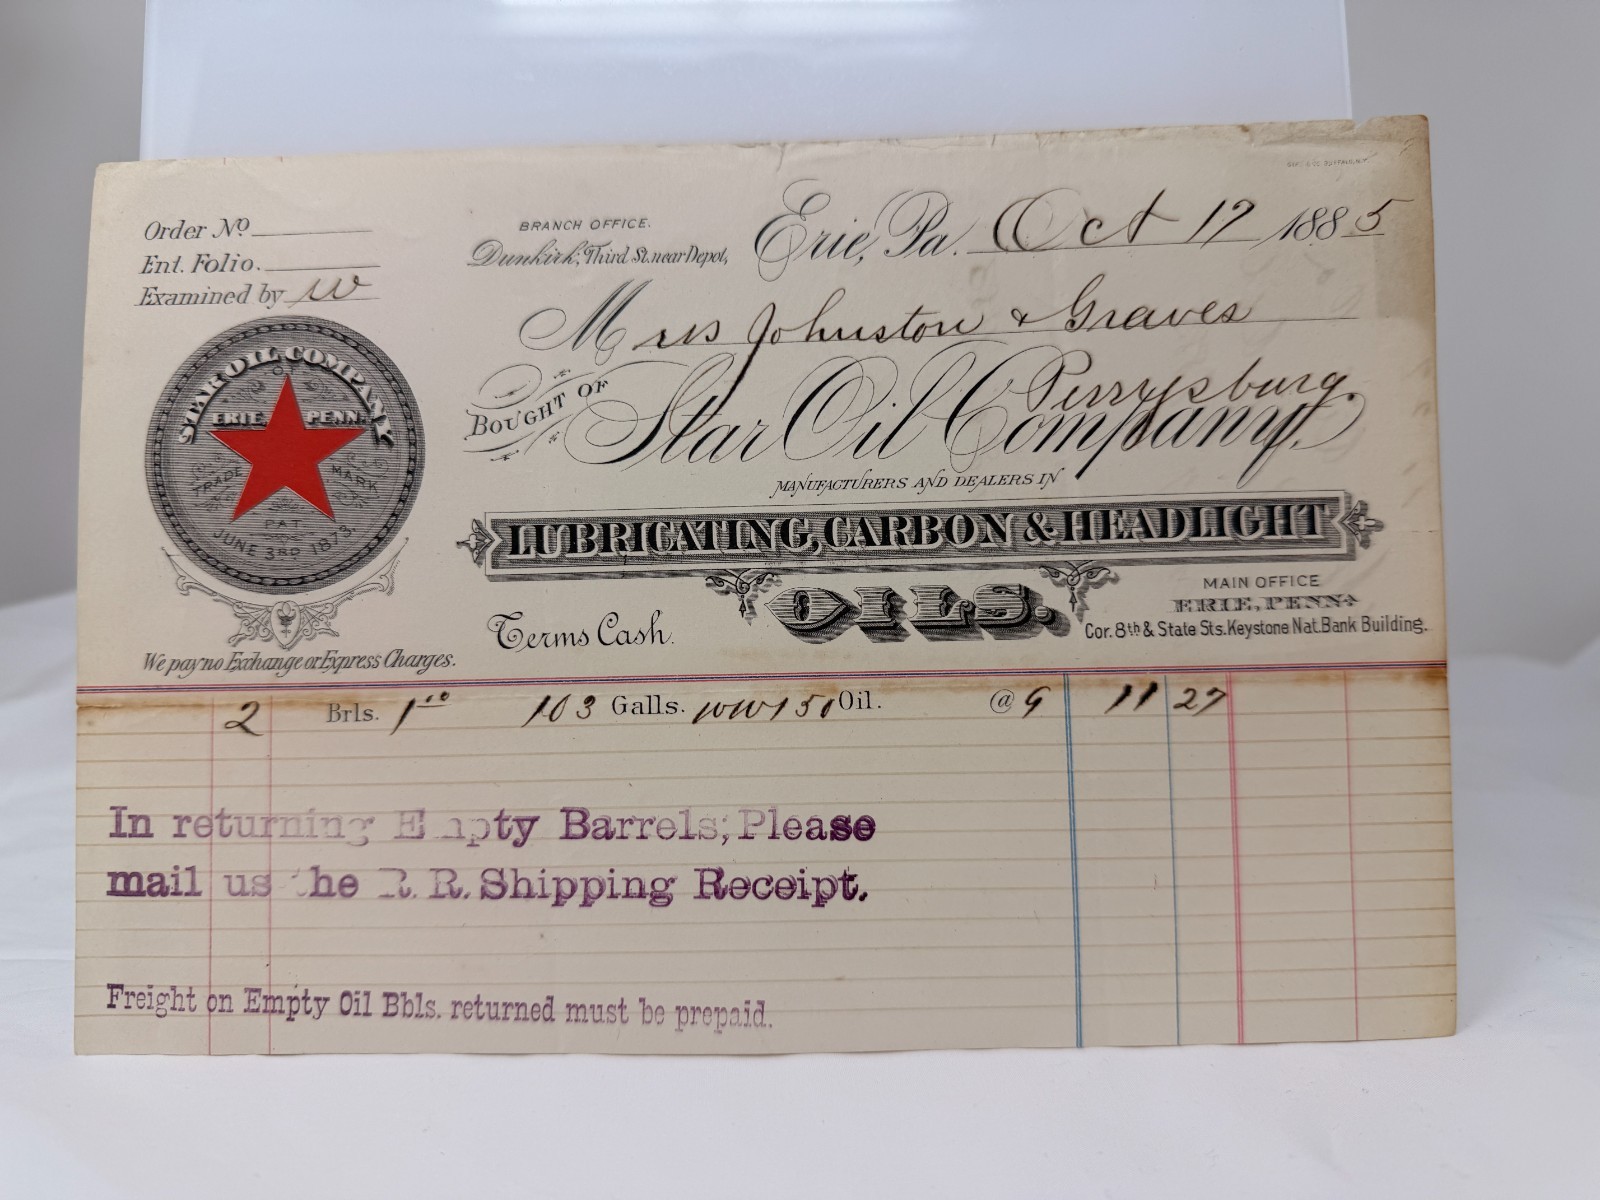 Order No
Ent. Folio.
Examined by W
BRANCH OFFICE.
Dunkirk, Third St. near Depot,
Erie, Pa. Oct 17 1885
Mrss Johnston & Graves
Perrysburg.
BOUGHT OF Star Oil Company,
MANUFACTURERS AND DEALERS IN
LUBRICATING, CARBON & HEADLIGHT
OILS.
STAR OIL COMPANY
OF
ERIE, PENN.
TRADE MARK
PAT
JUNE 3RD 1873.
Terms Cash.
MAIN OFFICE
ERIE, PENN.
Cor. 8th & State Sts. Keystone Nat. Bank Building.
We pay no Exchange or Express Charges.
2 Brls. 1 10 103 Galls. WW 150 Oil. @ 9 11 27
In returning Empty Barrels, Please
mail us the R. R. Shipping Receipt.
Freight on Empty Oil Bbls. returned must be prepaid.